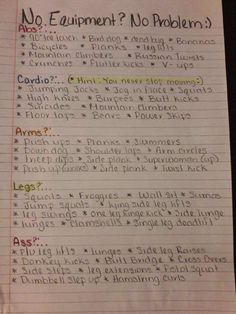 No Equipment? No Problem :)
Abs?...
* 90° * Bird dog * dead bug * Bananas
* Bicycles * Planks * leg lifts
* Mountain Climbers * Russian Twists
* Crunches * Flutter Kicks * V-ups
Cardio?... (* Hint: You never stop moving :)
* Jumping Jacks * Jog in Place * Squats
* High Knees * Burpees * Butt Kicks
* Suicides * Mountain Climbers
* Floor taps * Bears * Power Skips
Arms?...
* Push ups * Planks * Summers
* Down dog * Shoulder taps * Arm circles
* Tricep dips * Side plank * Superwoman (up)
* Push up * Side plank * Twist Kick
Legs?...
* Squats * Froggies * Wall Sit * Sumos
* Jump Squats * lying side leg lifts
* leg swings * one leg hinge kick * Side lunge
* lunges * Clamshells * Single leg deadlift
Ass?...
* Plie leg lifts * lunges * Side leg Raises
* Donkey Kicks * Butt Bridge * Cross Overs
* Side steps * leg extensions * Pistol Squat
* Dumbbell step up * Hamstring Curls